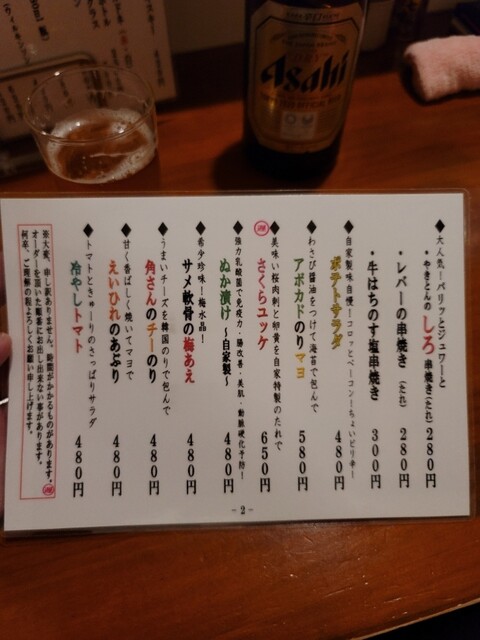 Asahi
◆大人気！パリッとジュワーと
やきとんの しろ 串焼き（たれ）280円
・レバーの串焼き（たれ）280円
・牛はちのす塩串焼き 300円
◆自家製味自慢！コロッとベーコン！ちょいピリ辛！
ポテトサラダ 480円
◆わさび醤油をつけて海苔で包んで
アボカドのりマヨ 580円
◆美味い桜肉刺と卵黄を自家特製のたれで
さくらユッケ 650円
◆強力乳酸菌で免疫力・腸改善・美肌・動脈硬化予防！
ぬか漬け～自家製～ 480円
◆希少珍味！梅水晶！
サメ軟骨の梅あえ 480円
◆うまいチーズを韓国のりで包んで
角さんのチーのり 480円
◆甘く香ばしく焼いてマヨで
えいひれのあぶり 480円
◆トマトときゅーりのさっぱりサラダ
冷やしトマト 480円
※大変、申し訳ありません。時間がかかるものがあります。
オーダーを頂いた順番にお出し出来ない事があります。
何卒、ご理解の程よろしくお願い申し上げます。
- 2 -